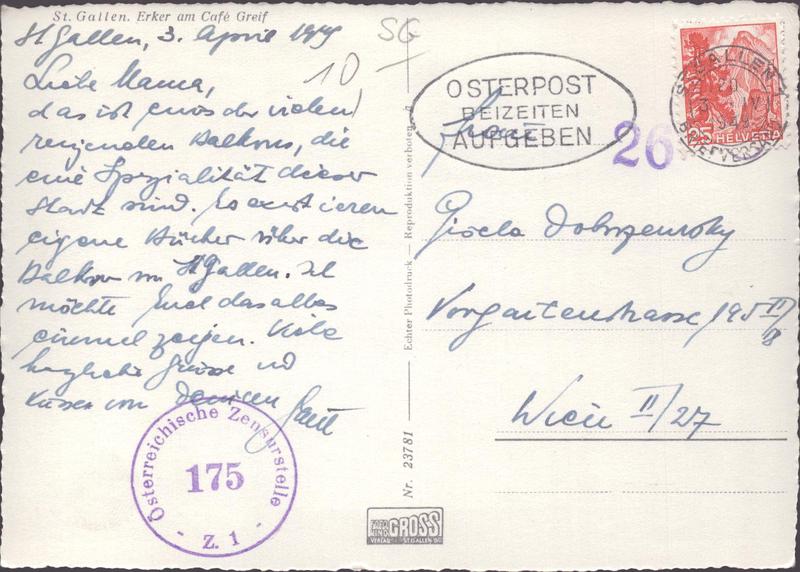 St. Gallen. Erker am Café Greif
St Gallen, 3. April 1949
Liebe Mama,
das ist eines der vielen
reizenden Balkons, die
eine Spezialität dieser
Stadt sind. Es existieren
eigene Bücher über die
Balkone von St Gallen. Ich
möchte Euch das alles
einmal zeigen. Viele
herzliche Grüsse und
Küsse von Deinem
10
SG
OSTERPOST
BEIZEITEN
AUFGEBEN
ST. GALLEN
BRIEFVERSAND
25 HELVETIA
26
Frau
Gisela Dobrzensky
Vorgartenstrasse 195 II/8
Wien II/27
Echter Photodruck — Reproduktion verboten.
Nr. 23781
Österreichische Zensurstelle
175
- Z. 1 -
GROSS
VERLAG ST. GALLEN